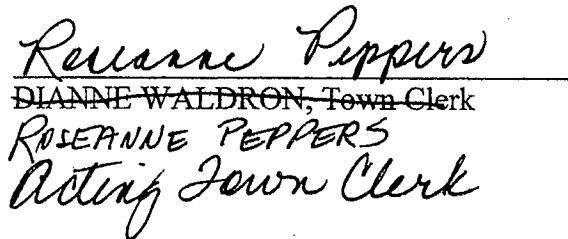 Roseanne Peppers
DIANNE WALDRON, Town Clerk
ROSEANNE PEPPERS
Acting Town Clerk